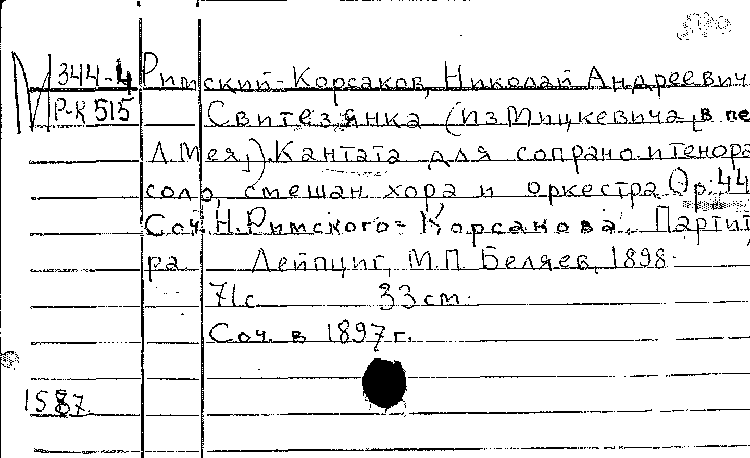 М 344-4 Римский-Корсаков, Николай Андреевич
Р-К 515 Свитезянка (из Мицкевича, в пе
Л. Мея,). Кантата для сопрано и тенора
соло, смешан хора и оркестра Op. 44
Соч. Н. Римского-Корсакова. Партит
ра Лейпциг, М.П. Беляев, 1898.
71с 33см.
Соч. в 1897г.
1587